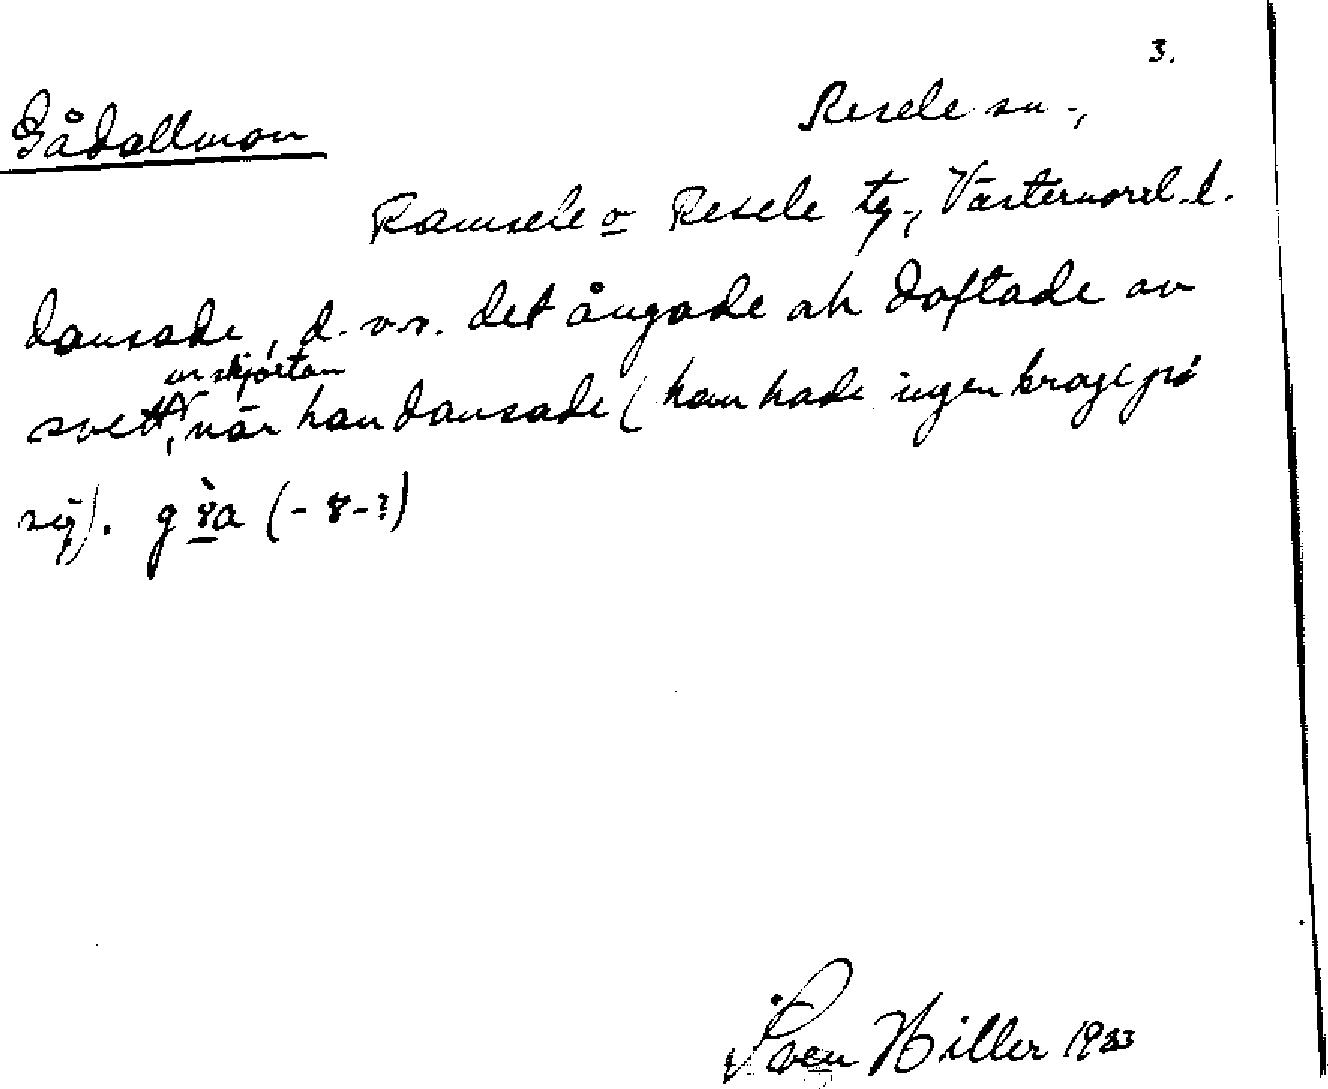 3.
Resele sn.,
Gådallmon
Ramsele o Resele tg., Västernorrl. l.
dansade, d.v.s. det ångade ah doftade av
ur skjortan
svett, när han dansade (han hade ingen krage på
sig). g
Sven Hiller 1933